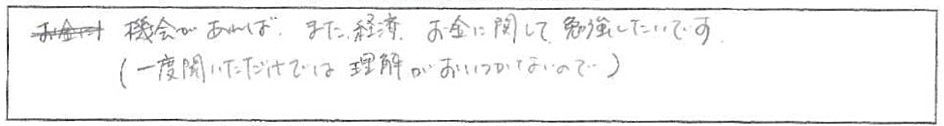 お金に 機会があれば、また、経済、お金に関して、勉強したいです。
(一度聞いただけでは 理解がおいつかないので)